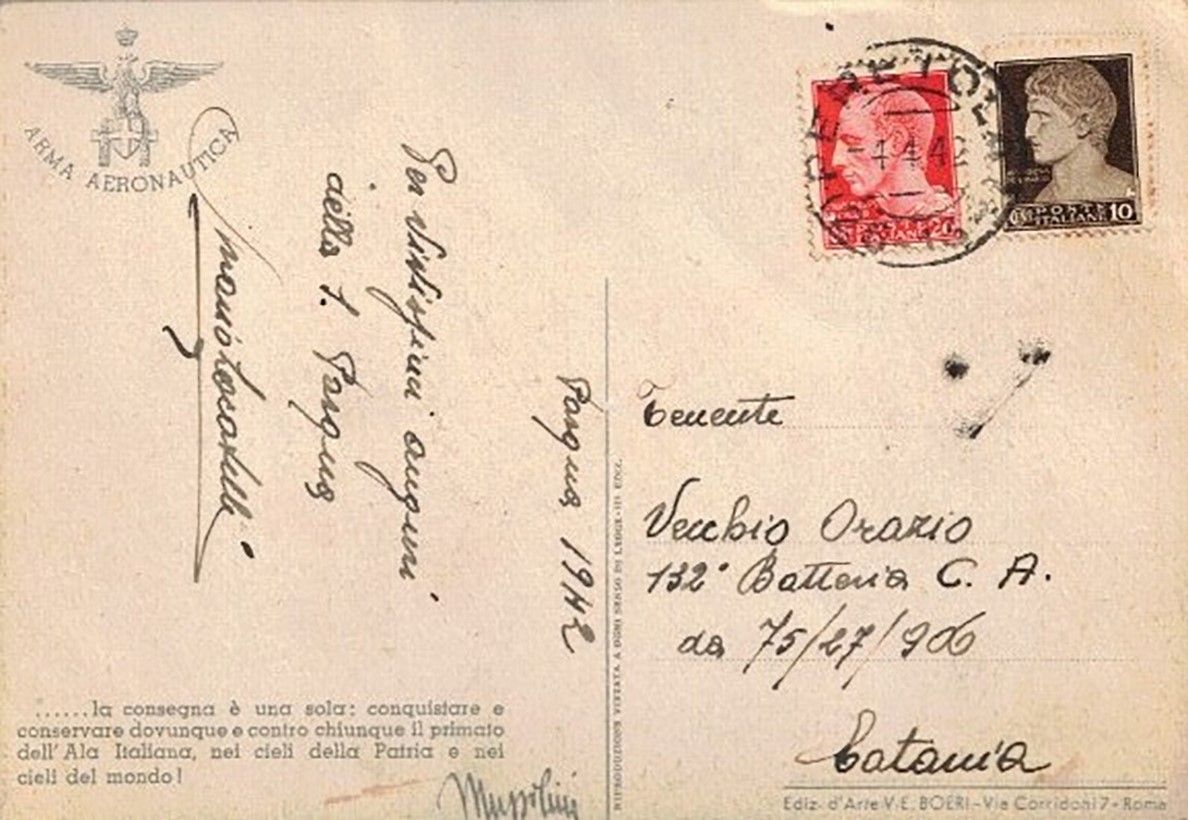 ARMA AERONAUTICA
Pasqua 1942
Per vivissimi auguri
della S. Pasqua
Mario Locatelli
POSTE
ITALIANE
20
POSTE
ITALIANE 10
4.4.42
Tenente
Vecchio Orazio
132° Batteria C. A.
da 75/27/906
Catania
......la consegna è una sola: conquistare e
conservare dovunque e contro chiunque il primato
dell'Ala Italiana, nei cieli della Patria e nei
cieli del mondo!
Mussolini
RIPRODUZIONE VIETATA A OGNI SENSO DI LEGGE
Ediz. d'Arte V. E. BOERI - Via Corridoni 7 - Roma